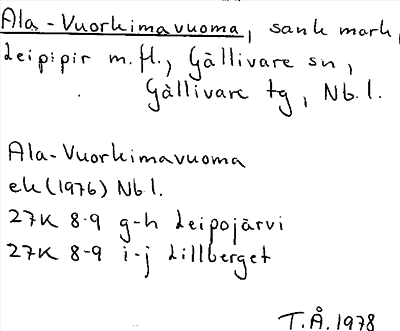 Ala-Vuorkimavuoma, sank mark,
Leipipir m.fl., Gällivare sn,
Gällivare tg, Nb.l.
Ala-Vuorkimavuoma
ek (1976) Nb l.
27K 8-9 g-h Leipojärvi
27K 8-9 i-j Lillberget
T.Å. 1978